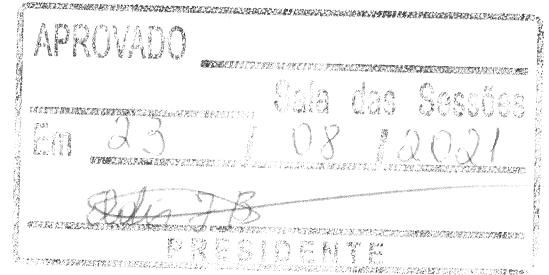 APROVADO
Sala das Sessões
Em 23 / 08 / 2021
PRESIDENTE